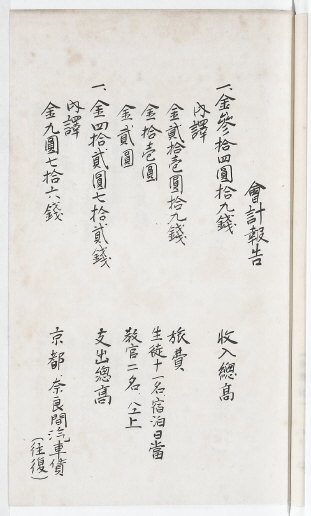 會計報告
一、金參拾四圓拾九錢 收入總高
內譯
金貳拾壱圓拾九錢 旅費
金拾壱圓 生徒十一名宿泊日當
金貳圓 教官二名仝上
一、金四拾貳圓七拾貳錢 支出總高
內譯
金九圓七拾六錢 京都奈良間汽車賃(往復)